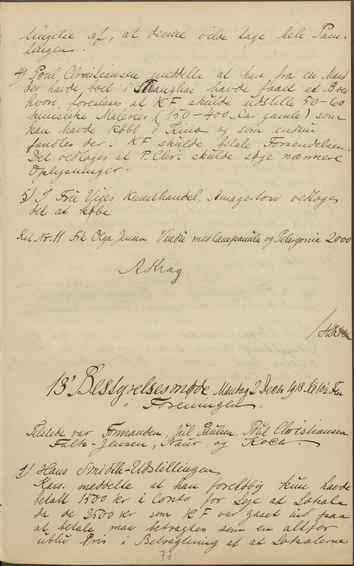 tingelse af, at denne vilde tage hele Sam-
lingen.
4) Poul Christiansen meddelte at han, fra en Mand
der havde boet i Shanghai havde faaet ad
hvori, foreslaaes at KF skulde udstille 50-60
kinesiske Malerier (150-400 Aar gamle) som
han havde købt i Kina og som endnu
fandtes der. KF skulde betale Forsendelsen.
Det vedtages at P. Chr. skulde søge nærmere
Oplysninger.
5) I Frk Vijes Kunsthandel, Amagertorv vedtoges
det at købe
Kat. Nr. 11 Frk Olga Jensen med Campanula og Pelargonia 2000
A Krag
13' Bestyrelsesmøde, Mandag 2 Decbr 1918 Kl
i Foreningen.
Tilstede var Formanden, Poul Christiansen
Falke-Jensen, Naur og Koch
1) Hans Smidth-Udstillingen
Kass. meddelte at han foreløbig kun havde
betalt 1500 kr i Conto for Leje af Lokale
da de 3500 kr som KF var gaaet ind paa
at betale man betragtes som en altfor
Pris i Betragtning af at Lokalerne
77